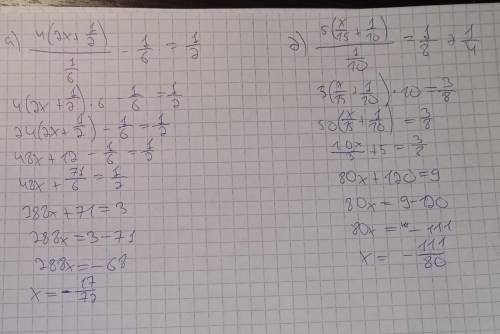 a) 4(2x+1/2)/(1/6) - 1/6 = 1/2
4(2x+1/2)·6 - 1/6 = 1/2
24(2x+1/2) - 1/6 = 1/2
48x+12 - 1/6 = 1/2
48x + 71/6 = 1/2
288x+71=3
288x=3-71
288x=-68
x=-17/72
5(x/15+1/10)/(1/10) = 1/8 1/4
(x/15+1/10)·10 = 3/8
50(x/15+1/10) = 3/8
+5 = 3/8
80x+120=9
80x=9-120
80x=-111
x=-111/80